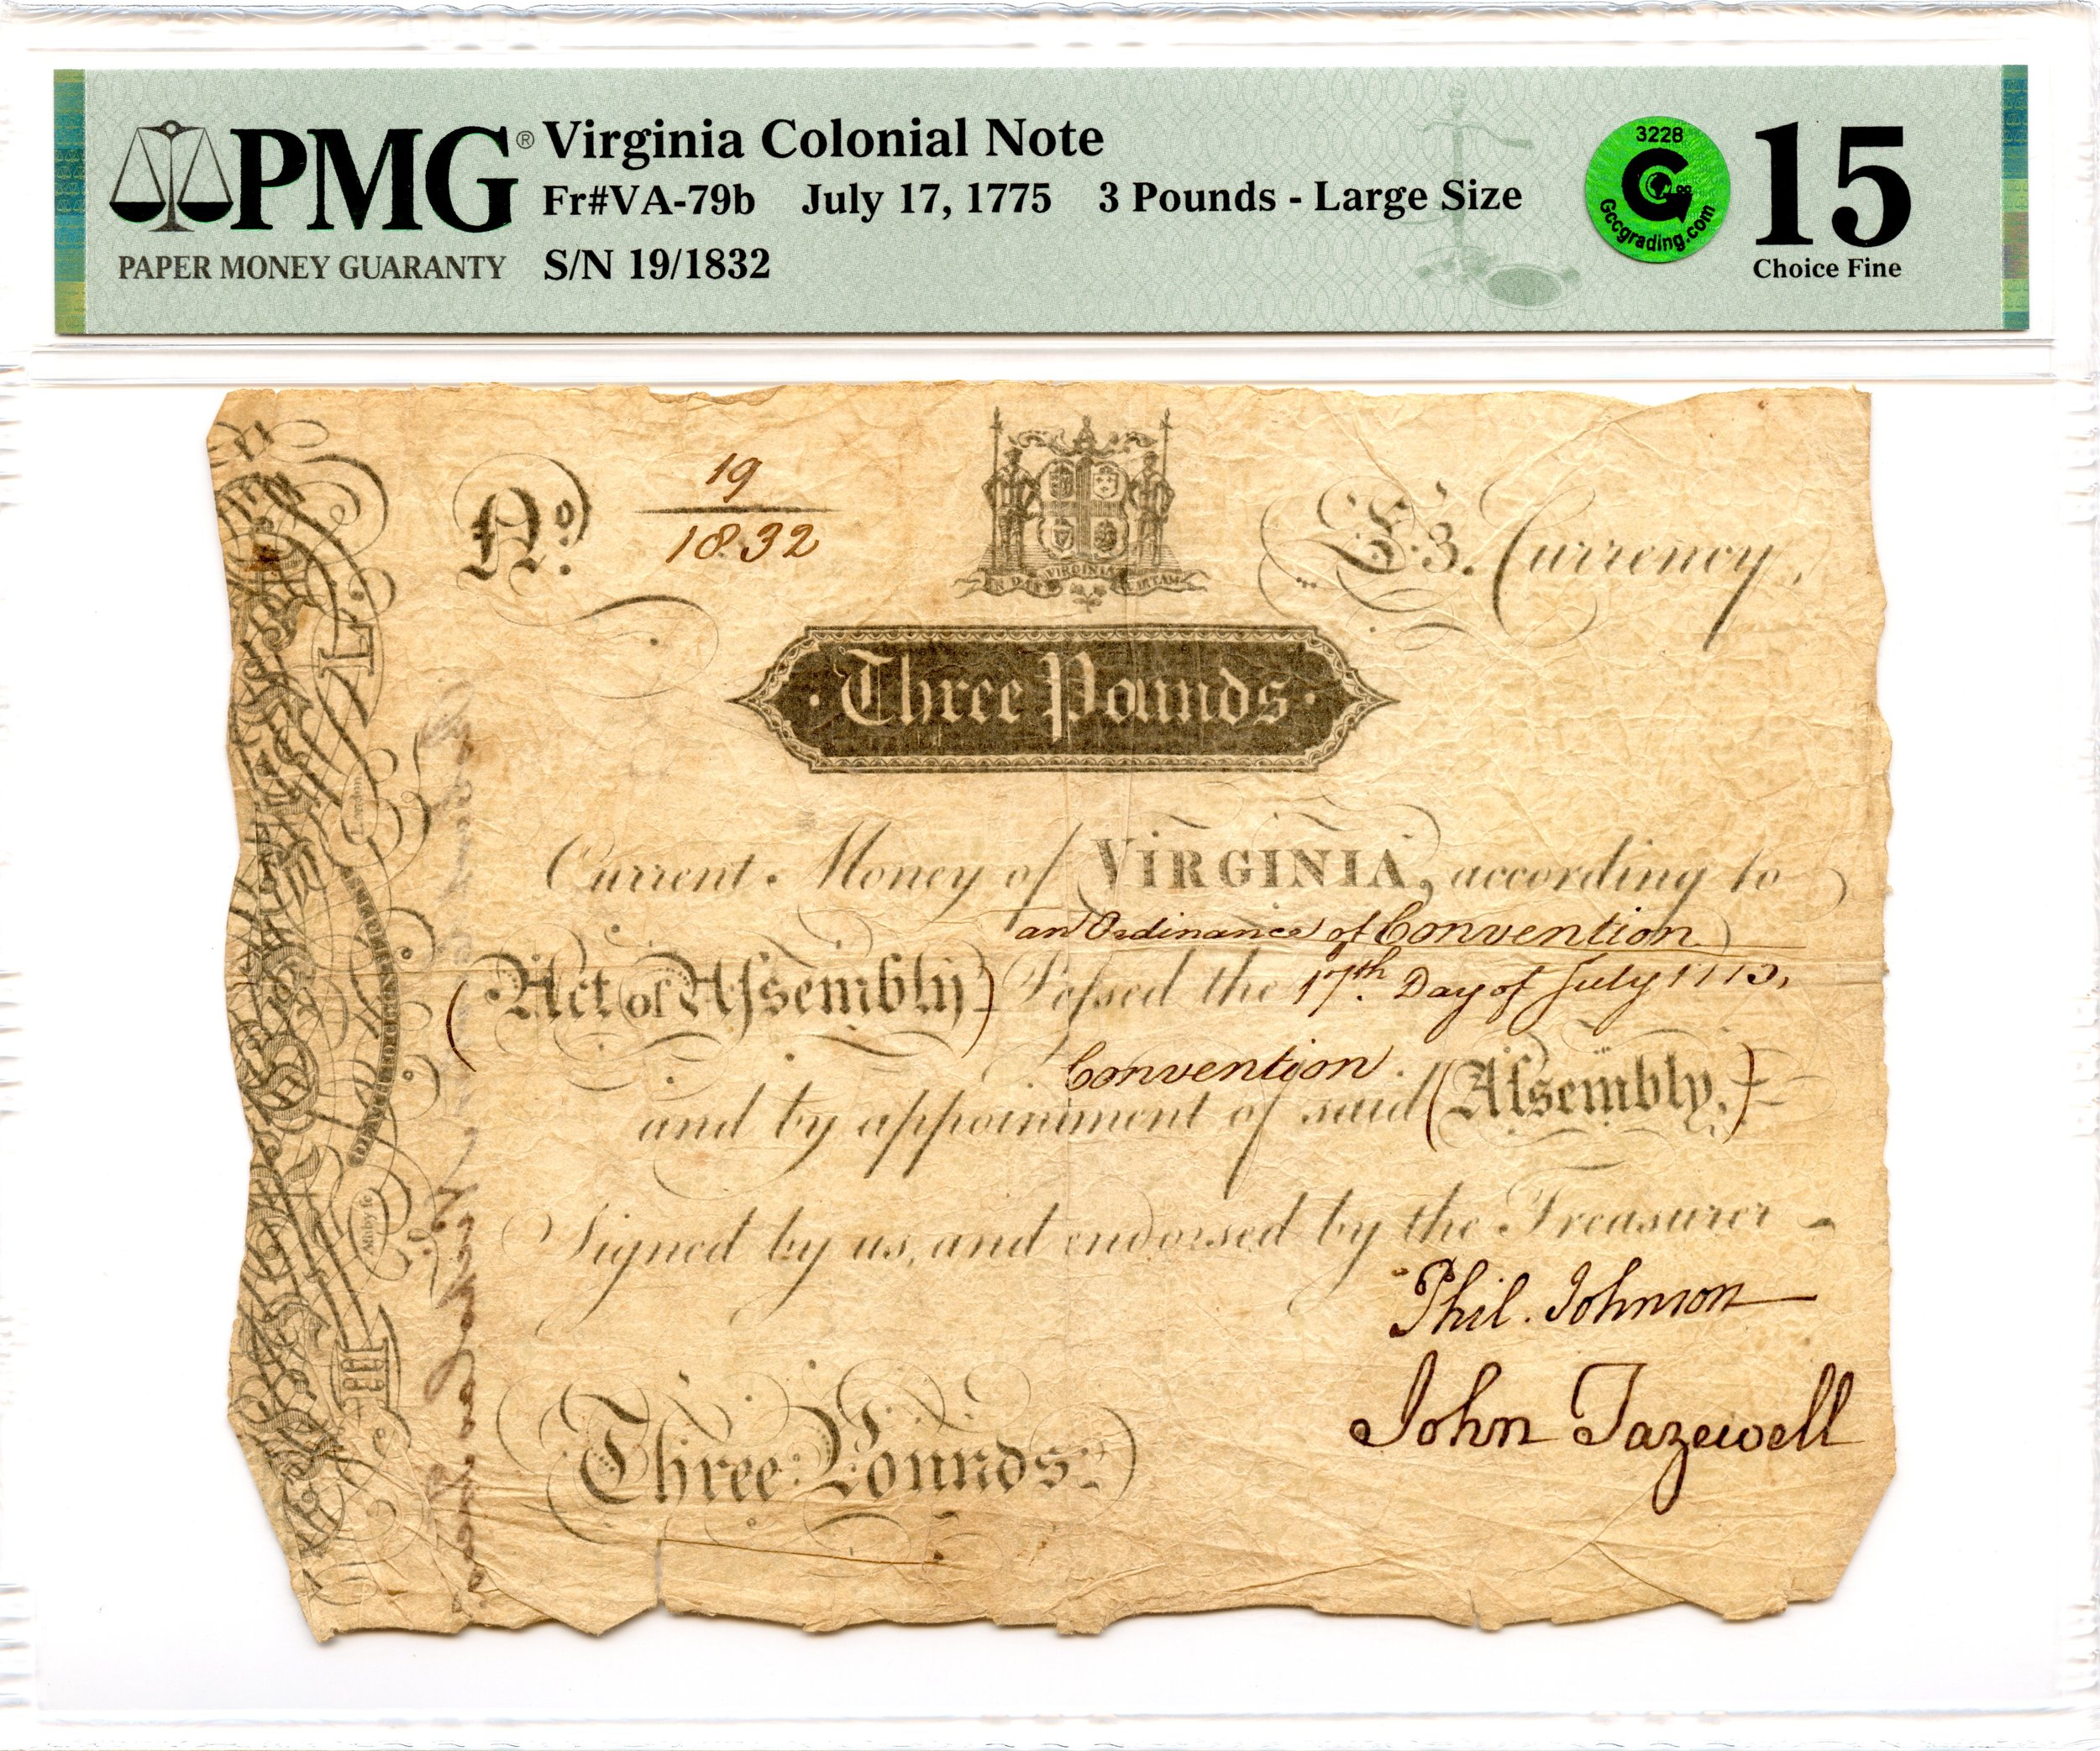 PMG® Virginia Colonial Note
Fr#VA-79b July 17, 1775 3 Pounds - Large Size
PAPER MONEY GUARANTY S/N 19/1832
3228
Gccgrading.com
15
Choice Fine
No. 19
1832
VIRGINIA
£3. Currency,
· Three Pounds ·
Current Money of VIRGINIA, according to
an Ordinance of Convention
(Act of Assembly) Passed the 17th. Day of July 1775,
Convention.
and by appointment of said (Assembly,)
Signed by us, and endorsed by the Treasurer
Phil. Johnson
John Tazewell
Three Pounds